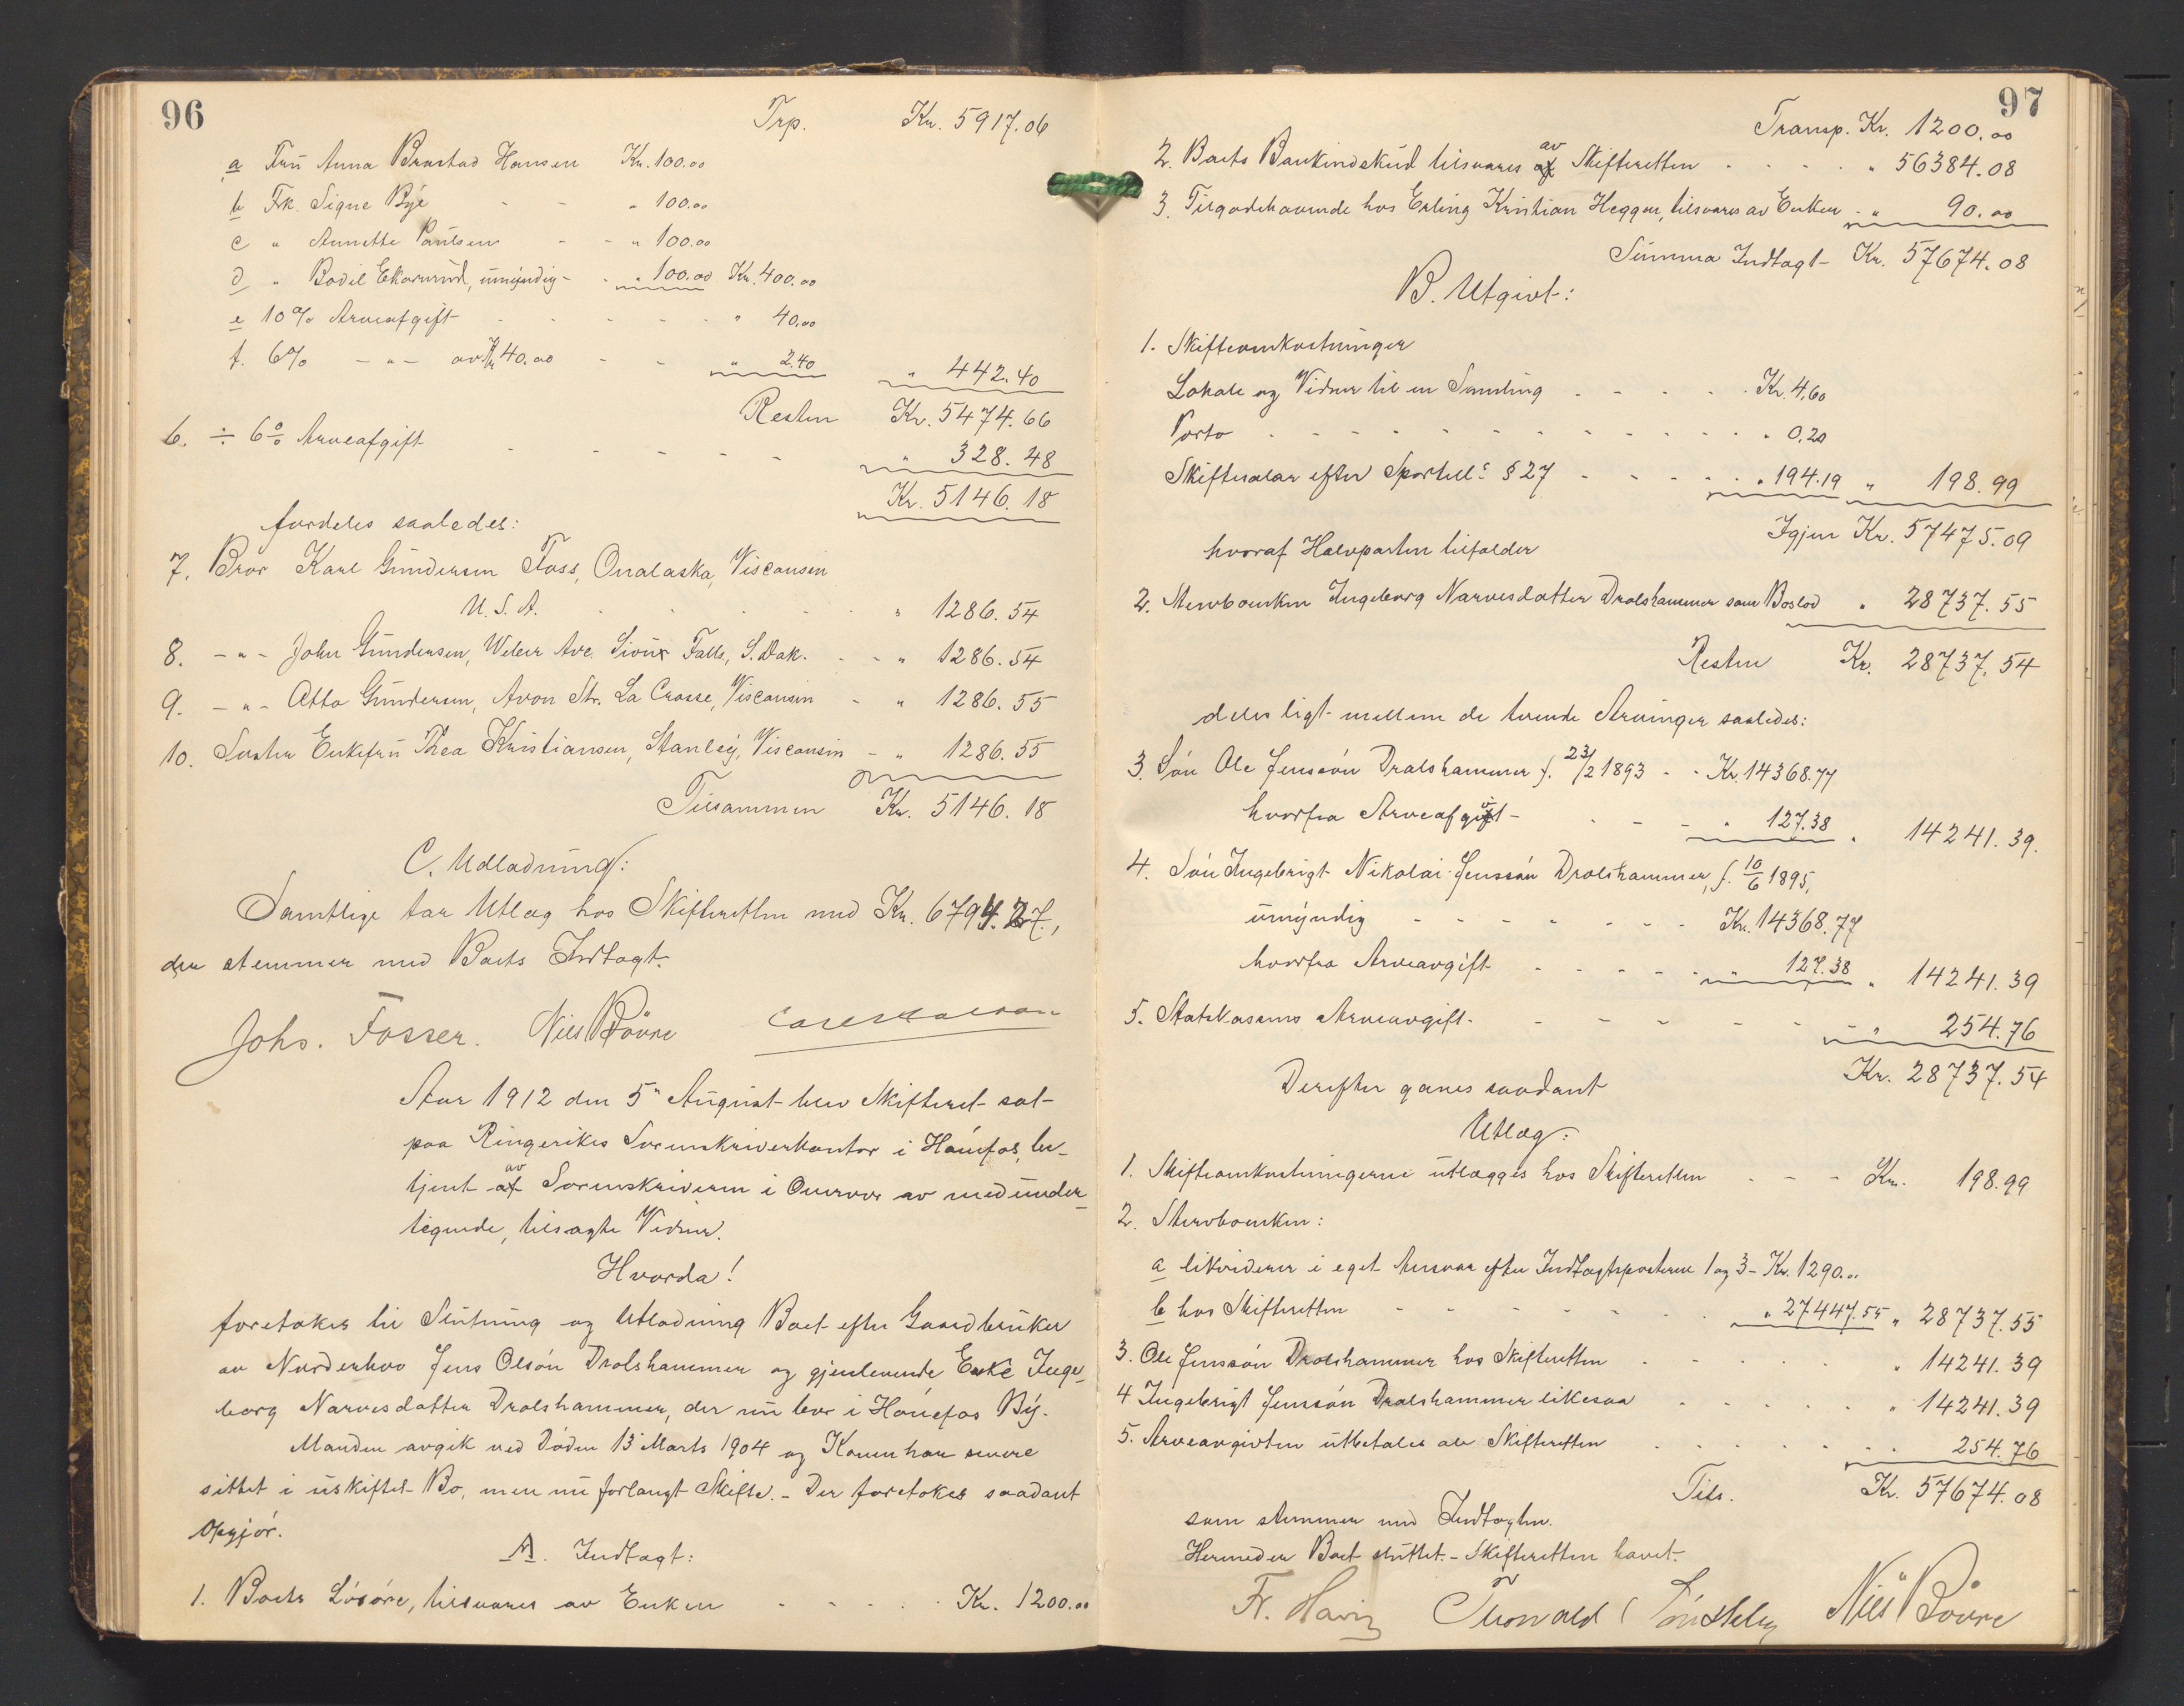 96
Trp. Kr. 5917.06
a Fru Anna Brastad Hansen Kr. 100.00
b Frk. Signe Bye - - " 100.00
c " Annette Paulsen - - " 100.00
d " Bodil Ekornrud, umyndig - " 100.00 Kr. 400.00
e 10% Arveafgift - - - - - " 40.00
f. 6% -"- av Kr 40.00 - - " 2.40 " 442.40
Resten Kr. 5474.66
6. ÷ 6% Arveafgift - - - - - " 328.48
Kr. 5146.18
fordeles saaledes:
7. Bror Karl Gundersen Foss, Onalaska, Visconsin
U.S.A. " 1286.54
8. -"- John Gundersen, Weber Ave. Sioux Falls, S. Dak. - - " 1286.54
9. -"- Otto Gundersen, Avon Str. La Crosse, Visconsin - " 1286.55
10. Søster Enkefru Thea Kristiansen, Stanley, Visconsin - " 1286.55
Tilsammen Kr. 5146.18
C. Udlodning:
Samtlige tar Utlæg hos Skifteretten med Kr. 6794.27,
der stemmer med Boets Indtægt.
Johs. Fosser. Niels Bövre
Aar 1912 den 5" August blev Skifteret sat
paa Ringerikes Sorenskriverkontor i Hønefos, be-
tjent af av Sorenskriveren i Overvær av medunder-
tegnede, tilsagte Vidner.
Hvorda!
foretokes til Slutning og Utlodning Boet efter Gaardbruker
av Norderhov Jens Olsøn Drolshammer og gjenlevende Enke Inge-
borg Narvesdatter Drolshammer, der nu bor i Hønefos By.
Manden avgik ved Døden 13 Marts 1904 og Konen har senere
sittet i uskiftet Bo, men nu forlangt Skifte. - Der foretokes saadant
Opgjør.
A. Indtægt:
1. Boets Løsøre, tilsvares av Enken - - - - Kr. 1200.00
97
Transp. Kr. 1200.00
2. Boets Bankindskud tilsvares af av Skifteretten - - - - " 56384.08
3. Tilgodehavende hos Erling Kristian Heggen, tilsvares av Enken - " 90.00
Summa Indtægt - Kr. 57674.08
B. Utgivt:
1. Skifteomkostninger
Lokale og Vidner til en Samling - - - - Kr. 4.60
Porto - - - - - - - - - - - - - " 0.20
Skiftesalær efter Sportell: § 27 - - - - " 194.19 " 198.99
Igjen Kr. 57475.09
hvoraf Halvparten tilfalder
2. Stervboenken Ingeborg Narvesdatter Drolshammer som Boslod " 28737.55
Resten Kr. 28737.54
deles ligt mellem de tvende Arvinger saaledes:
3. Søn Ole Jenssøn Drolshammer f. 23/2 1893 - - Kr. 14368.77
hvorfra Arveafgivt - - - - " 127.38 " 14241.39.
4. Søn Ingebrigt Nikolai Jenssøn Drolshammer, f. 10/6 1895,
umyndig - - - - - - - Kr. 14368.77
hvorfra Arveavgift - - - - - " 127.38 " 14241.39
5. Statskassens Arveavgift - - - - - - - " 254.76
Kr. 28737.54
Derefter gjøres saadant
Utlæg:
1. Skifteomkostningerne utlægges hos Skifteretten - - - Kr. 198.99
2. Stervboenken:
a likviderer i eget Ansvar efter Indtægtsposterne 1 og 3 - Kr. 1290.00
b hos Skifteretten - - - - - - " 27447.55 " 28737.55
3. Ole Jenssøn Drolshammer hos Skifteretten - - - - - " 14241.39
4 Ingebrigt Jenssøn Drolshammer likesaa - - - - - " 14241.39
5. Arveavgivten utbetales av Skifteretten - - - - - - - 254.76
Tils. Kr. 57674.08
som stemmer med Indtægten.
Hermed er Boet sluttet. - Skifteretten hævet.
Niels Bövre